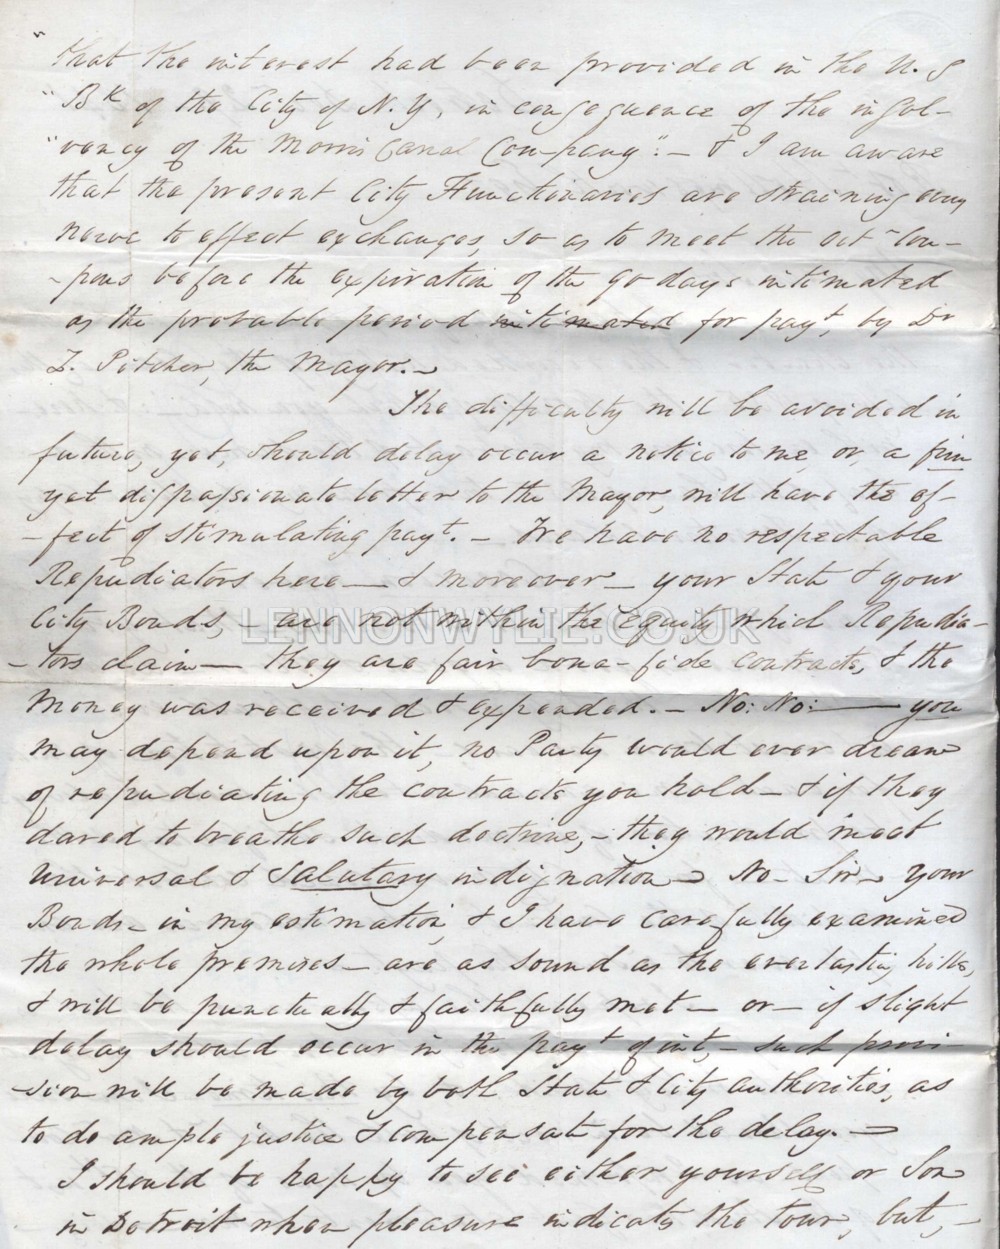 "that the interest had been provided in the U.S
"Bk of the City of N.Y, in consequence of the insol-
"vency of the Morris Canal Company":- & I am aware
that the present City Functionaries are straining every
nerve to effect exchanges, so as to meet the Oct- Cou-
-pons before the expiration of the 90 days intimated
as the probable period intimated for payt, by Dr
Z. Pitcher, the Mayor.-
The difficulty will be avoided in
future, yet, should delay occur a notice to me, or, a firm
yet dispassionate letter to the Mayor, will have the ef-
-fect of stimulating payt. - We have no respectable
Repudiators here - & moreover - your State & your
City Bonds, - are not within the Equity which Repudia-
-tors claim - they are fair bona-fide contracts, & the
Money was received & expended. - No: No: - you
may depend upon it, no Party would ever dream
of repudiating the contracts you hold - & if they
dared to breathe such doctrine, - they would meet
Universal & Salutary indignation - No - Sir - your
Bonds - in my estimation, & I have carefully examined
the whole premises - are as sound as the everlasting hills,
& will be punctually & faithfully met - or - if slight
delay should occur in the payt of int, - such provi-
-sion will be made by both State & City authorities, as
to do ample justice & compensate for the delay. -
I should be happy to see either yourself or Son
in Detroit when pleasure indicates the tour, but, -
LENNONWYLIE.CO.UK